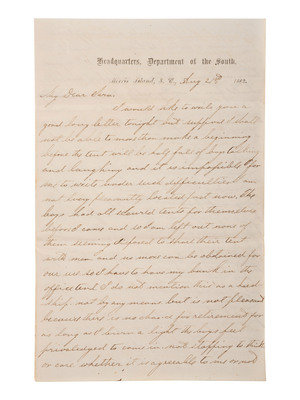 Headquarters, Department of the South,
Island, S. C., Aug 2 186
My Dear
I would like to write you a
good long letter tonight but suppose I shall
not be able to more than make a beginning
before the tent will be half full of boys talking
and laughing and it is impossible for
me to write under such difficulties. I am
not very pleasantly located just now. The
boys had all secured tents for themselves
before I came and so I am left out none of
them seeming disposed to share their tent
with me and as none can be obtained for
our use so I have to have my bunk in the
office tent I do not mention this as a hard
ship, not by any means but is not pleasant
because there is no chance for retirement for
as long as I burn a light the boys feel
priviledged to come in not stopping to think
or care whether it is agreeable to me or not